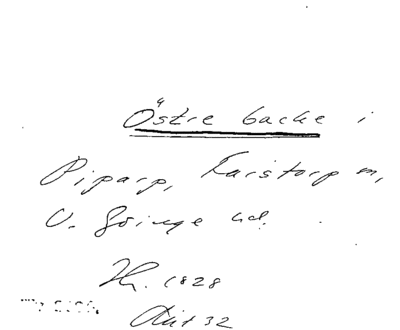 Östre backe i
Piparp, Farstorp sn,
V. Göinge hd.
Hr. 1828
32